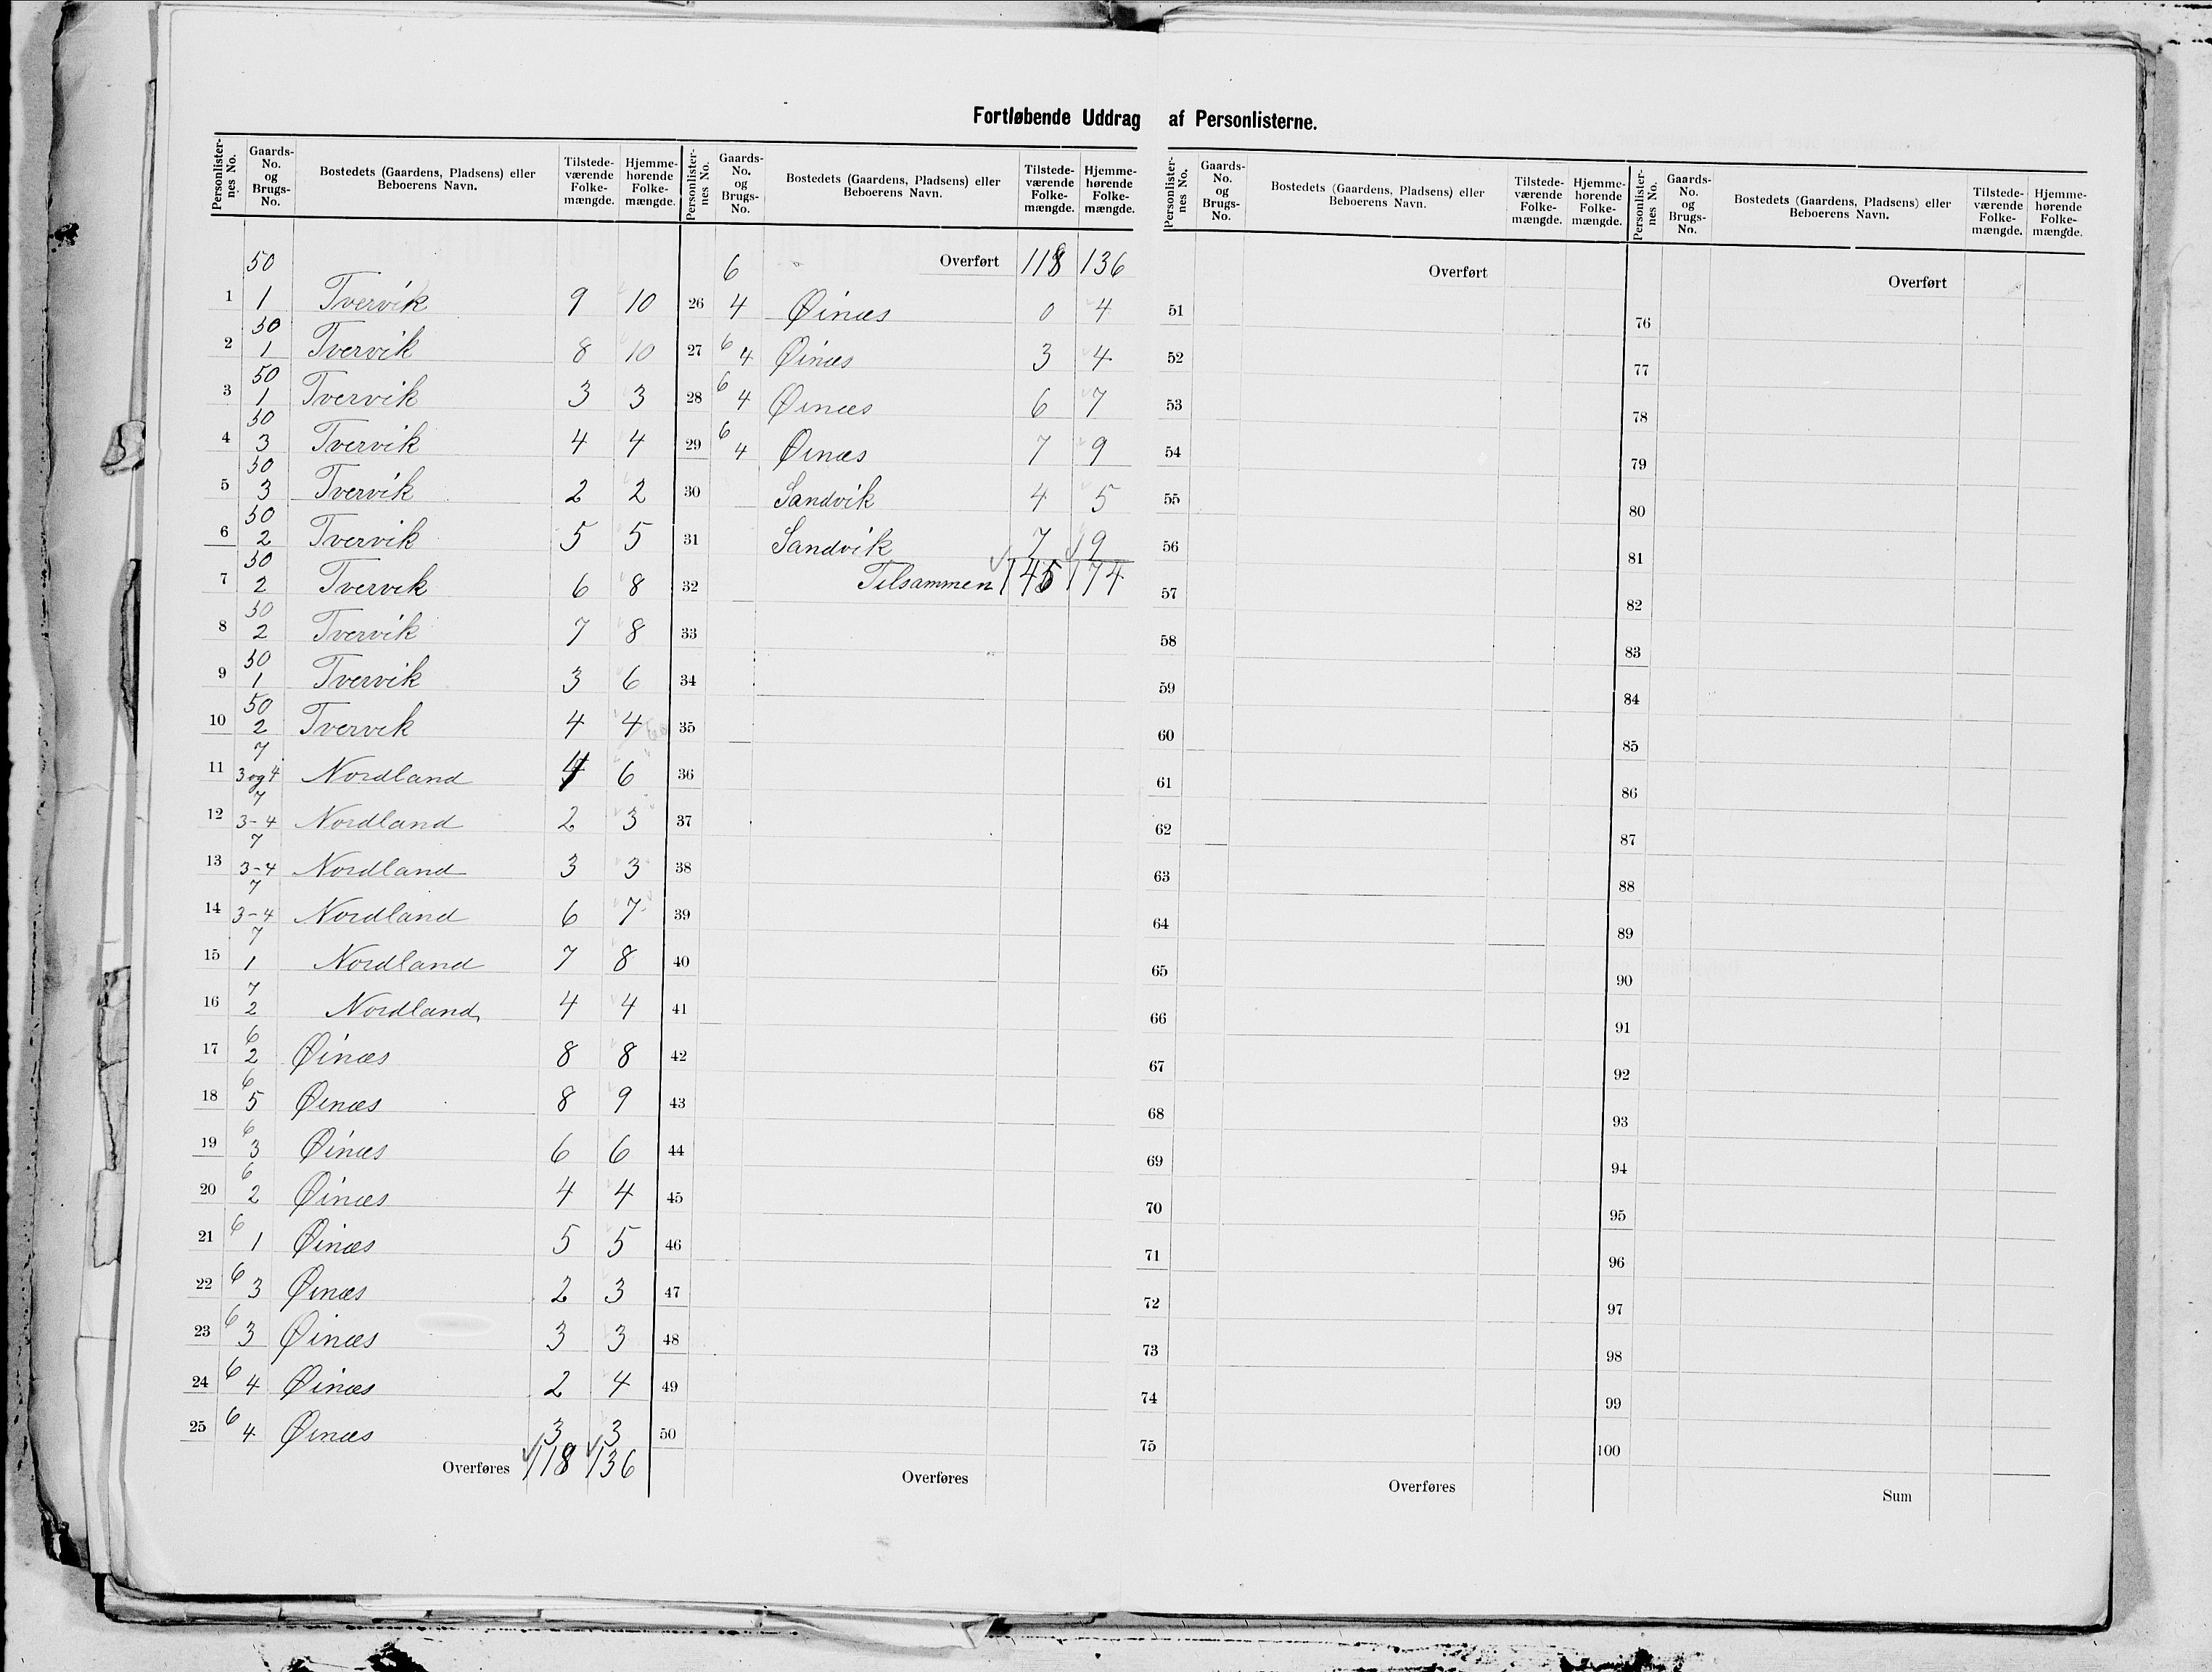 Fortløbende Uddrag af Personlisterne.
Personlister-nes No. Gaards-No. og Brugs-No. Bostedets (Gaardens, Pladsens) eller Beboerens Navn. Tilstede-værende Folke-mængde. Hjemme-hørende Folke-mængde.
1 50 1 Tvervik 9 10
2 50 1 Tvervik 8 10
3 50 1 Tvervik 3 3
4 50 3 Tvervik 4 4
5 50 3 Tvervik 2 2
6 50 2 Tvervik 5 5
7 50 2 Tvervik 6 8
8 50 2 Tvervik 7 8
9 50 1 Tvervik 3 6
10 50 2 Tvervik 4 4
11 7 3 og 4 Nordland 4 6
12 7 3-4 Nordland 2 3
13 7 3-4 Nordland 3 3
14 7 3-4 Nordland 6 7
15 7 1 Nordland 7 8
16 7 2 Nordland 4 4
17 6 2 Øinæs 8 8
18 6 5 Øinæs 8 9
19 6 3 Øinæs 6 6
20 6 2 Øinæs 4 4
21 6 1 Øinæs 5 5
22 6 3 Øinæs 2 3
23 6 3 Øinæs 3 3
24 6 4 Øinæs 2 4
25 6 4 Øinæs 3 3
Overføres 118 136
Personlister-nes No. Gaards-No. og Brugs-No. Bostedets (Gaardens, Pladsens) eller Beboerens Navn. Tilstede-værende Folke-mængde. Hjemme-hørende Folke-mængde.
Overført 118 136
26 6 4 Øinæs 0 4
27 6 4 Øinæs 3 4
28 6 4 Øinæs 6 7
29 6 4 Øinæs 7 9
30 Sandvik 4 5
31 Sandvik 7 9
32 Tilsammen 145 174
33
34
35
36
37
38
39
40
41
42
43
44
45
46
47
48
49
50
Overføres
Personlister-nes No. Gaards-No. og Brugs-No. Bostedets (Gaardens, Pladsens) eller Beboerens Navn. Tilstede-værende Folke-mængde. Hjemme-hørende Folke-mængde.
Overført
51
52
53
54
55
56
57
58
59
60
61
62
63
64
65
66
67
68
69
70
71
72
73
74
75
Overføres
Personlister-nes No. Gaards-No. og Brugs-No. Bostedets (Gaardens, Pladsens) eller Beboerens Navn. Tilstede-værende Folke-mængde. Hjemme-hørende Folke-mængde.
Overført
76
77
78
79
80
81
82
83
84
85
86
87
88
89
90
91
92
93
94
95
96
97
98
99
100
Sum